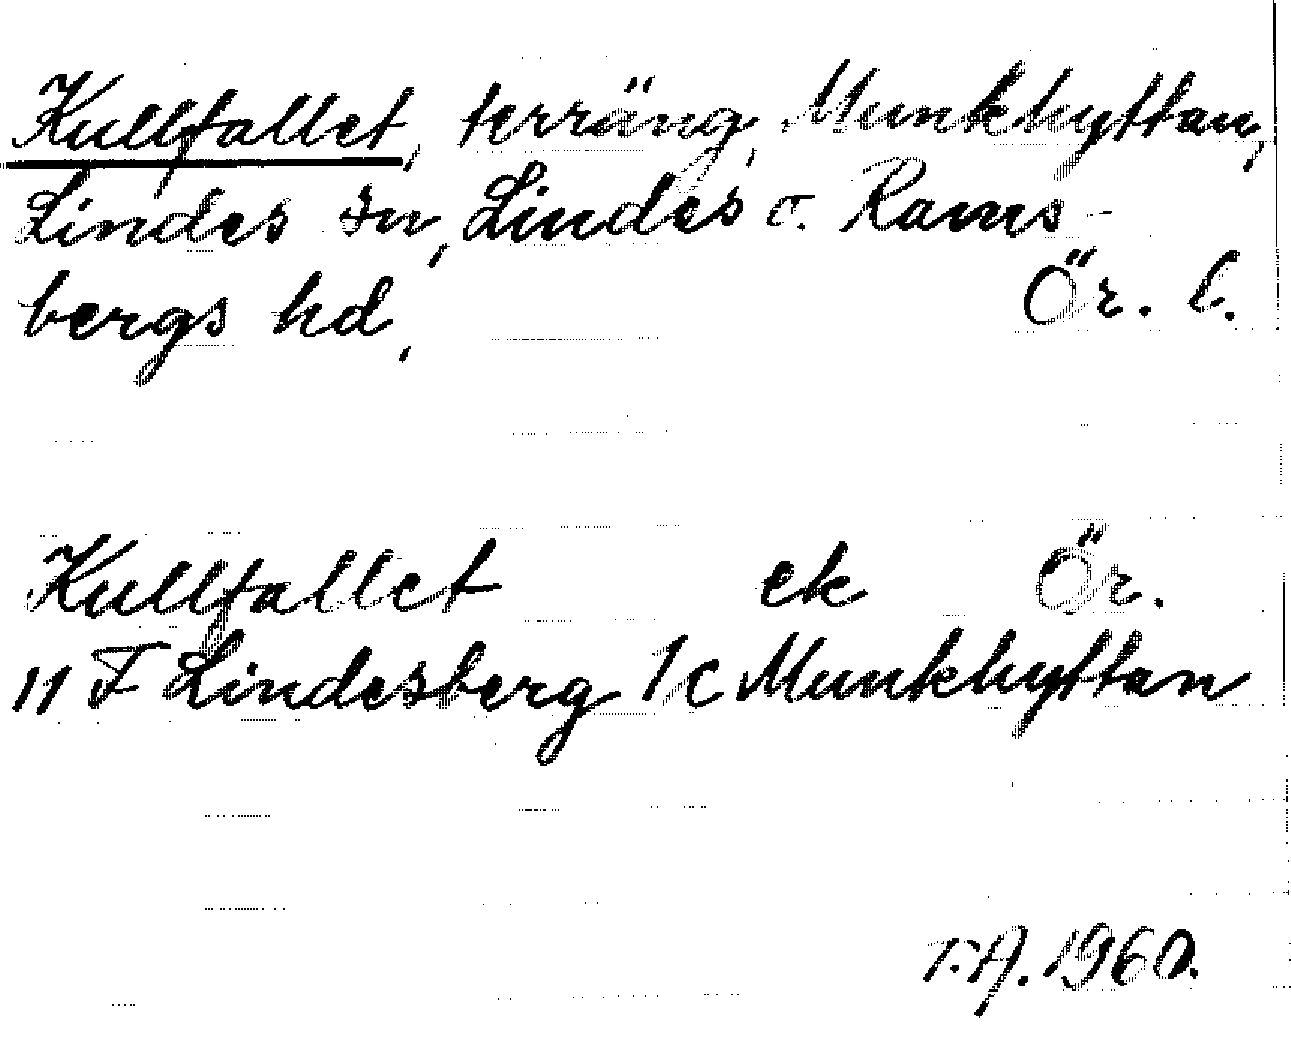 Kullfallet, terräng, Munkhyttan,
Lindes sn, Lindes o. Rams-
bergs hd, Ör. l.
Kullfallet ek Ör.
11 F Lindesberg 1 c Munkhyttan
T.A. 1960.